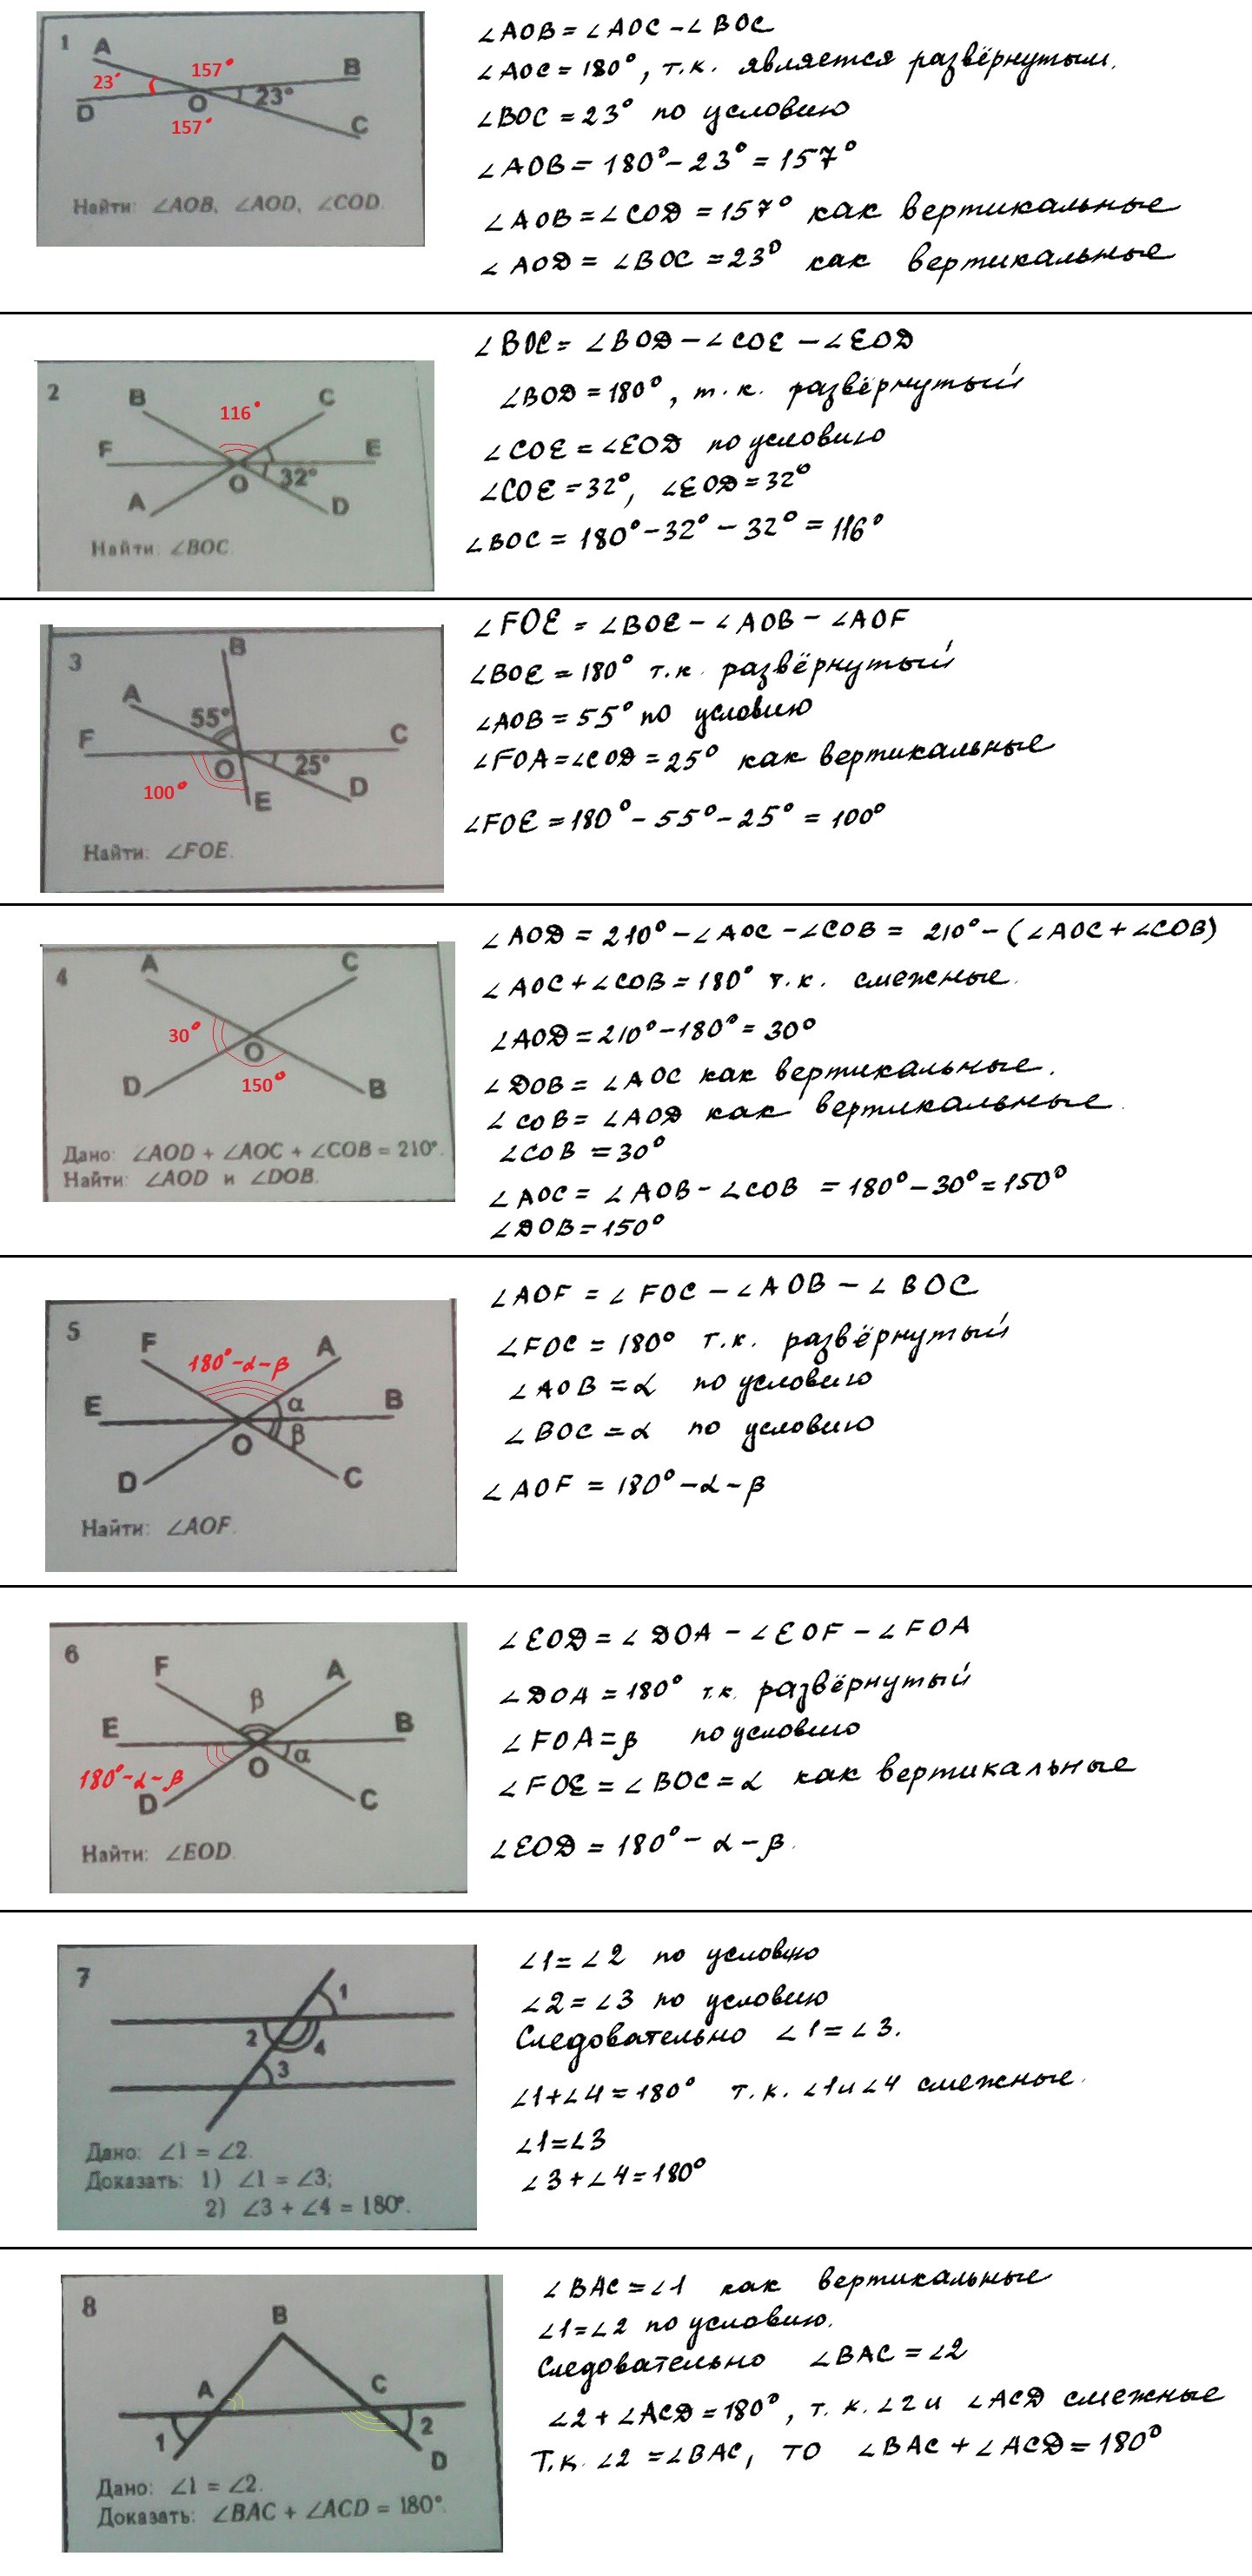 1
A
B
C
D
O
23°
157°
157°
23°
Найти: ∠AOB, ∠AOD, ∠COD.
∠AOB = ∠AOC - ∠BOC
∠AOC = 180°, т.к. является развёрнутым.
∠BOC = 23° по условию
∠AOB = 180° - 23° = 157°
∠AOB = ∠COD = 157° как вертикальные
∠AOD = ∠BOC = 23° как вертикальные
2
B
C
116°
F
E
O
32°
A
D
Найти: ∠BOC.
∠BOC = ∠BOD - ∠COE - ∠EOD
∠BOD = 180°, т.к. развёрнутый
∠COE = ∠EOD по условию
∠COE = 32°, ∠EOD = 32°
∠BOC = 180° - 32° - 32° = 116°
3
B
A
55°
F
C
O
25°
100°
E
D
Найти: ∠FOE.
∠FOE = ∠BOE - ∠AOB - ∠AOF
∠BOE = 180° т.к. развёрнутый
∠AOB = 55° по условию
∠FOA = ∠COD = 25° как вертикальные
∠FOE = 180° - 55° - 25° = 100°
4
A
C
30°
O
150°
D
B
Дано: ∠AOD + ∠AOC + ∠COB = 210°.
Найти: ∠AOD и ∠DOB.
∠AOD = 210° - ∠AOC - ∠COB = 210° - (∠AOC + ∠COB)
∠AOC + ∠COB = 180° т.к. смежные.
∠AOD = 210° - 180° = 30°
∠DOB = ∠AOC как вертикальные.
∠COB = ∠AOD как вертикальные.
∠COB = 30°
∠AOC = ∠AOB - ∠COB = 180° - 30° = 150°
∠DOB = 150°
5
F
A
180°-α-β
E
B
α
β
O
D
C
Найти: ∠AOF.
∠AOF = ∠FOC - ∠AOB - ∠BOC
∠FOC = 180° т.к. развёрнутый
∠AOB = α по условию
∠BOC = α по условию
∠AOF = 180° - α - β
6
F
A
β
E
B
α
O
180°-α-β
D
C
Найти: ∠EOD.
∠EOD = ∠DOA - ∠EOF - ∠FOA
∠DOA = 180° т.к. развёрнутый
∠FOA = β по условию
∠FOE = ∠BOC = α как вертикальные
∠EOD = 180° - α - β.
7
1
2
4
3
Дано: ∠1 = ∠2.
Доказать: 1) ∠1 = ∠3;
2) ∠3 + ∠4 = 180°.
∠1 = ∠2 по условию
∠2 = ∠3 по условию
Следовательно ∠1 = ∠3.
∠1 + ∠4 = 180° т.к. ∠1 и ∠4 смежные.
∠1 = ∠3
∠3 + ∠4 = 180°
8
B
A
C
1
2
D
Дано: ∠1 = ∠2.
Доказать: ∠BAC + ∠ACD = 180°.
∠BAC = ∠1 как вертикальные
∠1 = ∠2 по условию.
Следовательно ∠BAC = ∠2
∠2 + ∠ACD = 180°, т.к. ∠2 и ∠ACD смежные
Т.к. ∠2 = ∠BAC, то ∠BAC + ∠ACD = 180°